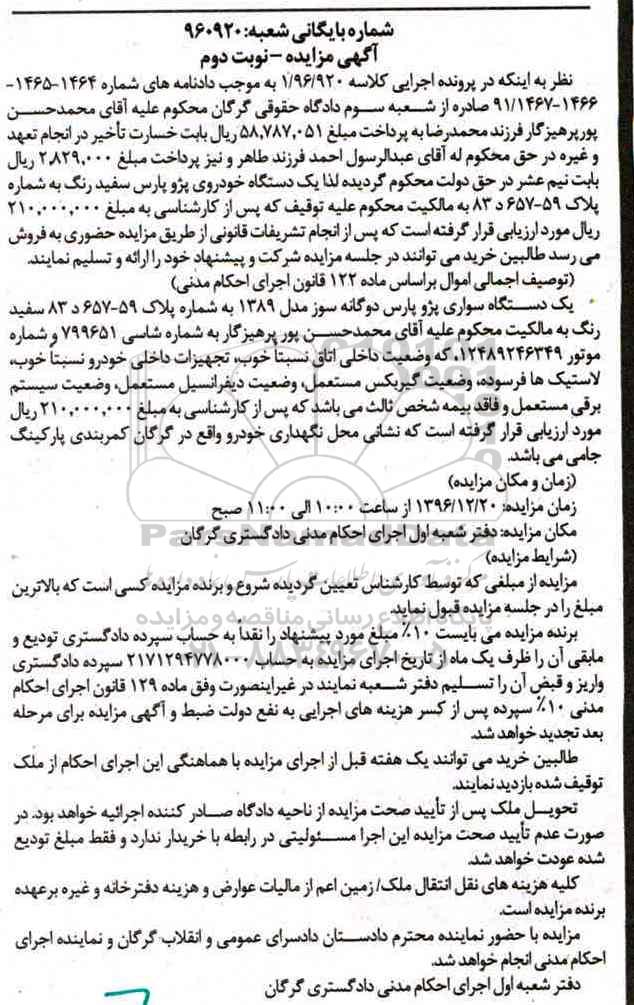 شماره بایگانی شعبه: ۹۶۰۹۲۰
آگهی مزایده – نوبت دوم
نظر به اینکه در پرونده اجرایی کلاسه ۱/۹۶/۹۲۰ به موجب دادنامه های شماره ۱۴۶۴-۱۴۶۵-
۱۴۶۶-۹۱/۱۴۶۷ صادره از شعبه سوم دادگاه حقوقی گرگان محکوم علیه آقای محمدحسن
پورپرهیزگار فرزند محمدرضا به پرداخت مبلغ ۵۸,۷۸۷,۰۵۱ ریال بابت خسارت تأخیر در انجام تعهد
و غیره در حق محکوم له آقای عبدالرسول احمد فرزند طاهر و نیز پرداخت مبلغ ۲,۸۲۹,۰۰۰ ریال
بابت نیم عشر در حق دولت محکوم گردیده لذا یک دستگاه خودروی پژو پارس سفید رنگ به شماره
پلاک ۵۹-۶۵۷ د ۸۳ به مالکیت محکوم علیه توقیف که پس از کارشناسی به مبلغ ۲۱۰,۰۰۰,۰۰۰
ریال مورد ارزیابی قرار گرفته است که پس از انجام تشریفات قانونی از طریق مزایده حضوری به فروش
می رسد طالبین خرید می توانند در جلسه مزایده شرکت و پیشنهاد خود را ارائه و تسلیم نمایند.
(توصیف اجمالی اموال براساس ماده ۱۲۲ قانون اجرای احکام مدنی)
یک دستگاه سواری پژو پارس دوگانه سوز مدل ۱۳۸۹ به شماره پلاک ۵۹-۶۵۷ د ۸۳ سفید
رنگ به مالکیت محکوم علیه آقای محمدحسن پور پرهیزگار به شماره شاسی ۷۹۹۶۵۱ و شماره
موتور ۱۲۴۸۹۲۴۶۳۴۹، که وضعیت داخلی اتاق نسبتاً خوب، تجهیزات داخلی خودرو نسبتاً خوب،
لاستیک ها فرسوده، وضعیت گیربکس مستعمل، وضعیت دیفرانسیل مستعمل، وضعیت سیستم
برقی مستعمل و فاقد بیمه شخص ثالث می باشد که پس از کارشناسی به مبلغ ۲۱۰,۰۰۰,۰۰۰ ریال
مورد ارزیابی قرار گرفته است که نشانی محل نگهداری خودرو واقع در گرگان کمربندی پارکینگ
جامی می باشد.
(زمان و مکان مزایده)
زمان مزایده: ۱۳۹۶/۱۲/۲۰ از ساعت ۱۰:۰۰ الی ۱۱:۰۰ صبح
مکان مزایده: دفتر شعبه اول اجرای احکام مدنی دادگستری گرگان
ParsNamadData
(شرایط مزایده)
مزایده از مبلغی که توسط کارشناس تعیین گردیده شروع و برنده مزایده کسی است که بالاترین
مبلغ را در جلسه مزایده قبول نماید.
پایگاه اطلاع رسانی مناقصه و مزایده
برنده مزایده می بایست ۱۰٪ مبلغ مورد پیشنهاد را نقداً به حساب سپرده دادگستری تودیع و
مابقی آن را ظرف یک ماه از تاریخ اجرای مزایده به حساب ۲۱۷۱۲۹۴۷۷۸۰۰۰ سپرده دادگستری
واریز و قبض آن را تسلیم دفتر شعبه نمایند در غیراینصورت وفق ماده ۱۲۹ قانون اجرای احکام
مدنی ۱۰٪ سپرده پس از کسر هزینه های اجرایی به نفع دولت ضبط و آگهی مزایده برای مرحله
بعد تجدید خواهد شد.
طالبین خرید می توانند یک هفته قبل از اجرای مزایده با هماهنگی این اجرای احکام از ملک
توقیف شده بازدید نمایند.
تحویل ملک پس از تأیید صحت مزایده از ناحیه دادگاه صادر کننده اجرائیه خواهد بود. در
صورت عدم تأیید صحت مزایده این اجرا مسئولیتی در رابطه با خریدار ندارد و فقط مبلغ تودیع
شده عودت خواهد شد.
کلیه هزینه های نقل انتقال ملک/ زمین اعم از مالیات عوارض و هزینه دفترخانه و غیره برعهده
برنده مزایده است.
مزایده با حضور نماینده محترم دادستان دادسرای عمومی و انقلاب گرگان و نماینده اجرای
احکام مدنی انجام خواهد شد.
دفتر شعبه اول اجرای احکام مدنی دادگستری گرگان